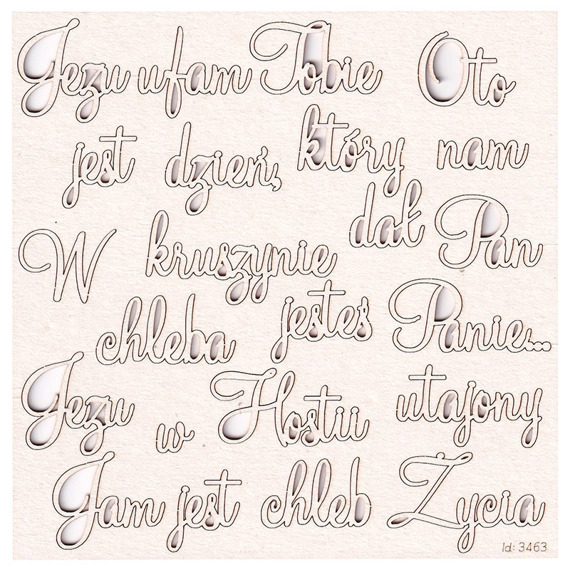 Jezu ufam Tobie Oto
jest dzień, który nam
dał Pan
W kruszynie
chleba jesteś Panie...
Jezu w Hostii utajony
Jam jest chleb Życia
Id: 3463